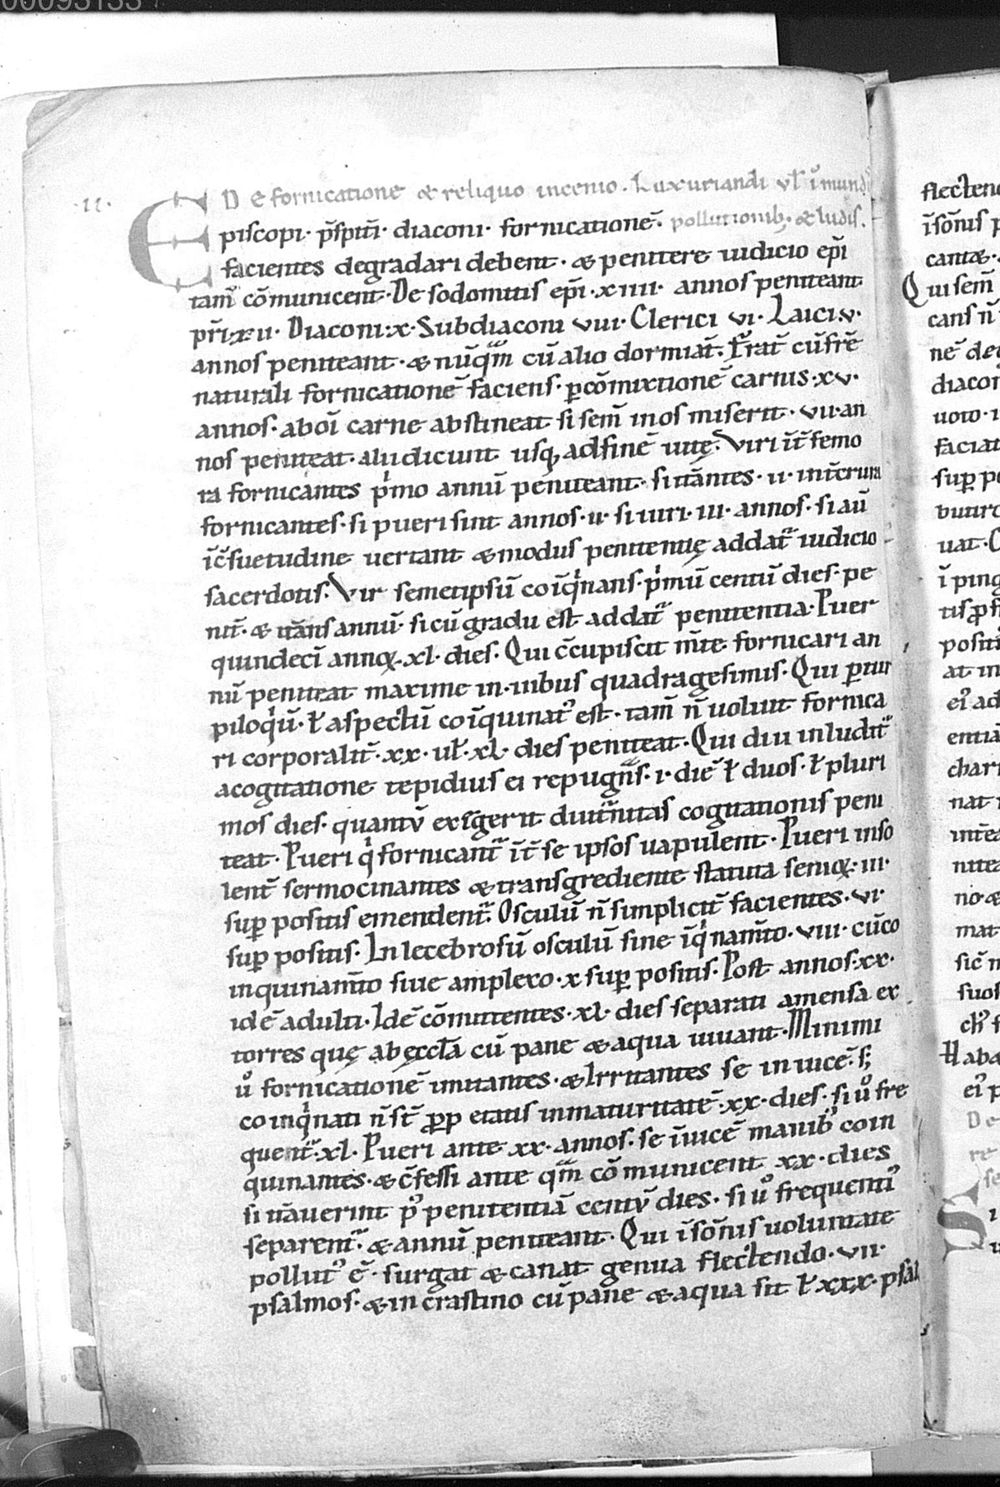 00093133
.II. De fornicatione & reliquo incenio. Luxuriandi vł ĩmund
Episcopi· p̄sp̄tr̄i· diaconi· fornicationē· pollutionib; & ludis.
facientes degradari debent· & penitere iudicio ep̄i
tam̄ cōmunicent· De sodomitis ep̄i· xiiii· annos peniteant
pr̄i· xii· Diaconi· x· Subdiaconi viii· Clerici vi· Laici v·
annos peniteant· & nūq̄m cū alio dormiat̄· Frat̄ cū fr̄e
naturali fornicationē faciens· ꝑ cōmixtionē carnis· xv·
annos· ab oī carne abstineat si sem̄ in os miserit· vii· an
nos peniteat· alii dicunt usq; ad finē uitę· Viri īt̄ femo
ra fornicantes pⁱmo annū peniteant· sit̄antes· ii· int̄ crura
fornicantes· si pueri sint annos· ii· si uiri· iii· annos· si aū
ī c̄suetudine uertant & modus penitentię addat̄ iudicio
sacerdotis· Vir semetipsū coīqⁱnans· pⁱmū centū dies· pe
nit̄· & it̄ans annū· si cū gradu est addat̄ penitentia· Puer
quindecī annoꝝ· xl· dies· Qui c̄cupiscit m̄te fornicari an
nū peniteat maxime in· iiibus quadragesimis· Qui ꝑ tur
piloqⁱū· ł aspectū coīquinat᾽ est· tam̄ n̄ uoluit fornica
ri corporalit̄· xx· ul̄· xl· dies peniteat· Qui diu inludit̄
a cogitatione tepidius ei repugn̄s· i· diē ł duos· ł pluri
mos dies· quantū exigerit diut̄nitas cogitationis peni
teat· Pueri qⁱ fornicant̄ īt̄ se ipsos uapulent· Pueri inso
lent̄ sermocinantes & transgrediente statuta senioꝝ· iii·
suꝑ positis emendent̄· Osculū n̄ simplicit̄ facientes· vi·
suꝑ positis· Inlecebrosū osculū sine īqⁱnam̄to· viii· cū co
inquinam̄to siue amplexo· x suꝑ positis· Post annos· xx·
id ē adulti· Idē cōmittentes· xl· dies separati a mensa ex
torres quę ab ęccl̄a cū pane & aqua uiuant· Minimi
u᾽ fornicationē imitantes· & Irritantes se in uicē· s;
coinqⁱnati n̄ st̄ ꝓp etatis inmaturitatē· xx· dies· si u᾽ fre
quent̄· xl· Pueri ante xx· annos· se īuicē manib᾽ coin
quinantes· & c̄fessi ante q̄m cōmunicent xx· dies
si it̄auerint p᾽ penitentiā centū dies· si u᾽ frequenti᾽
separent̄· & annū peniteant· Qui ī sōnis uoluntate
pollut᾽ ē· surgat & canat genua flectendo· vii·
psalmos· & in crastino cū pane & aqua sit ł xxx· psal
flecten
ī sōnis p
cantæ·
Qui sem̄
cans n̄
nē de
diacon
uoto· i
faciat
suꝑ po
ī ping
posit
at in
entia
nat
no· &
mat
suos
Haba
ei᾽ p
De
re